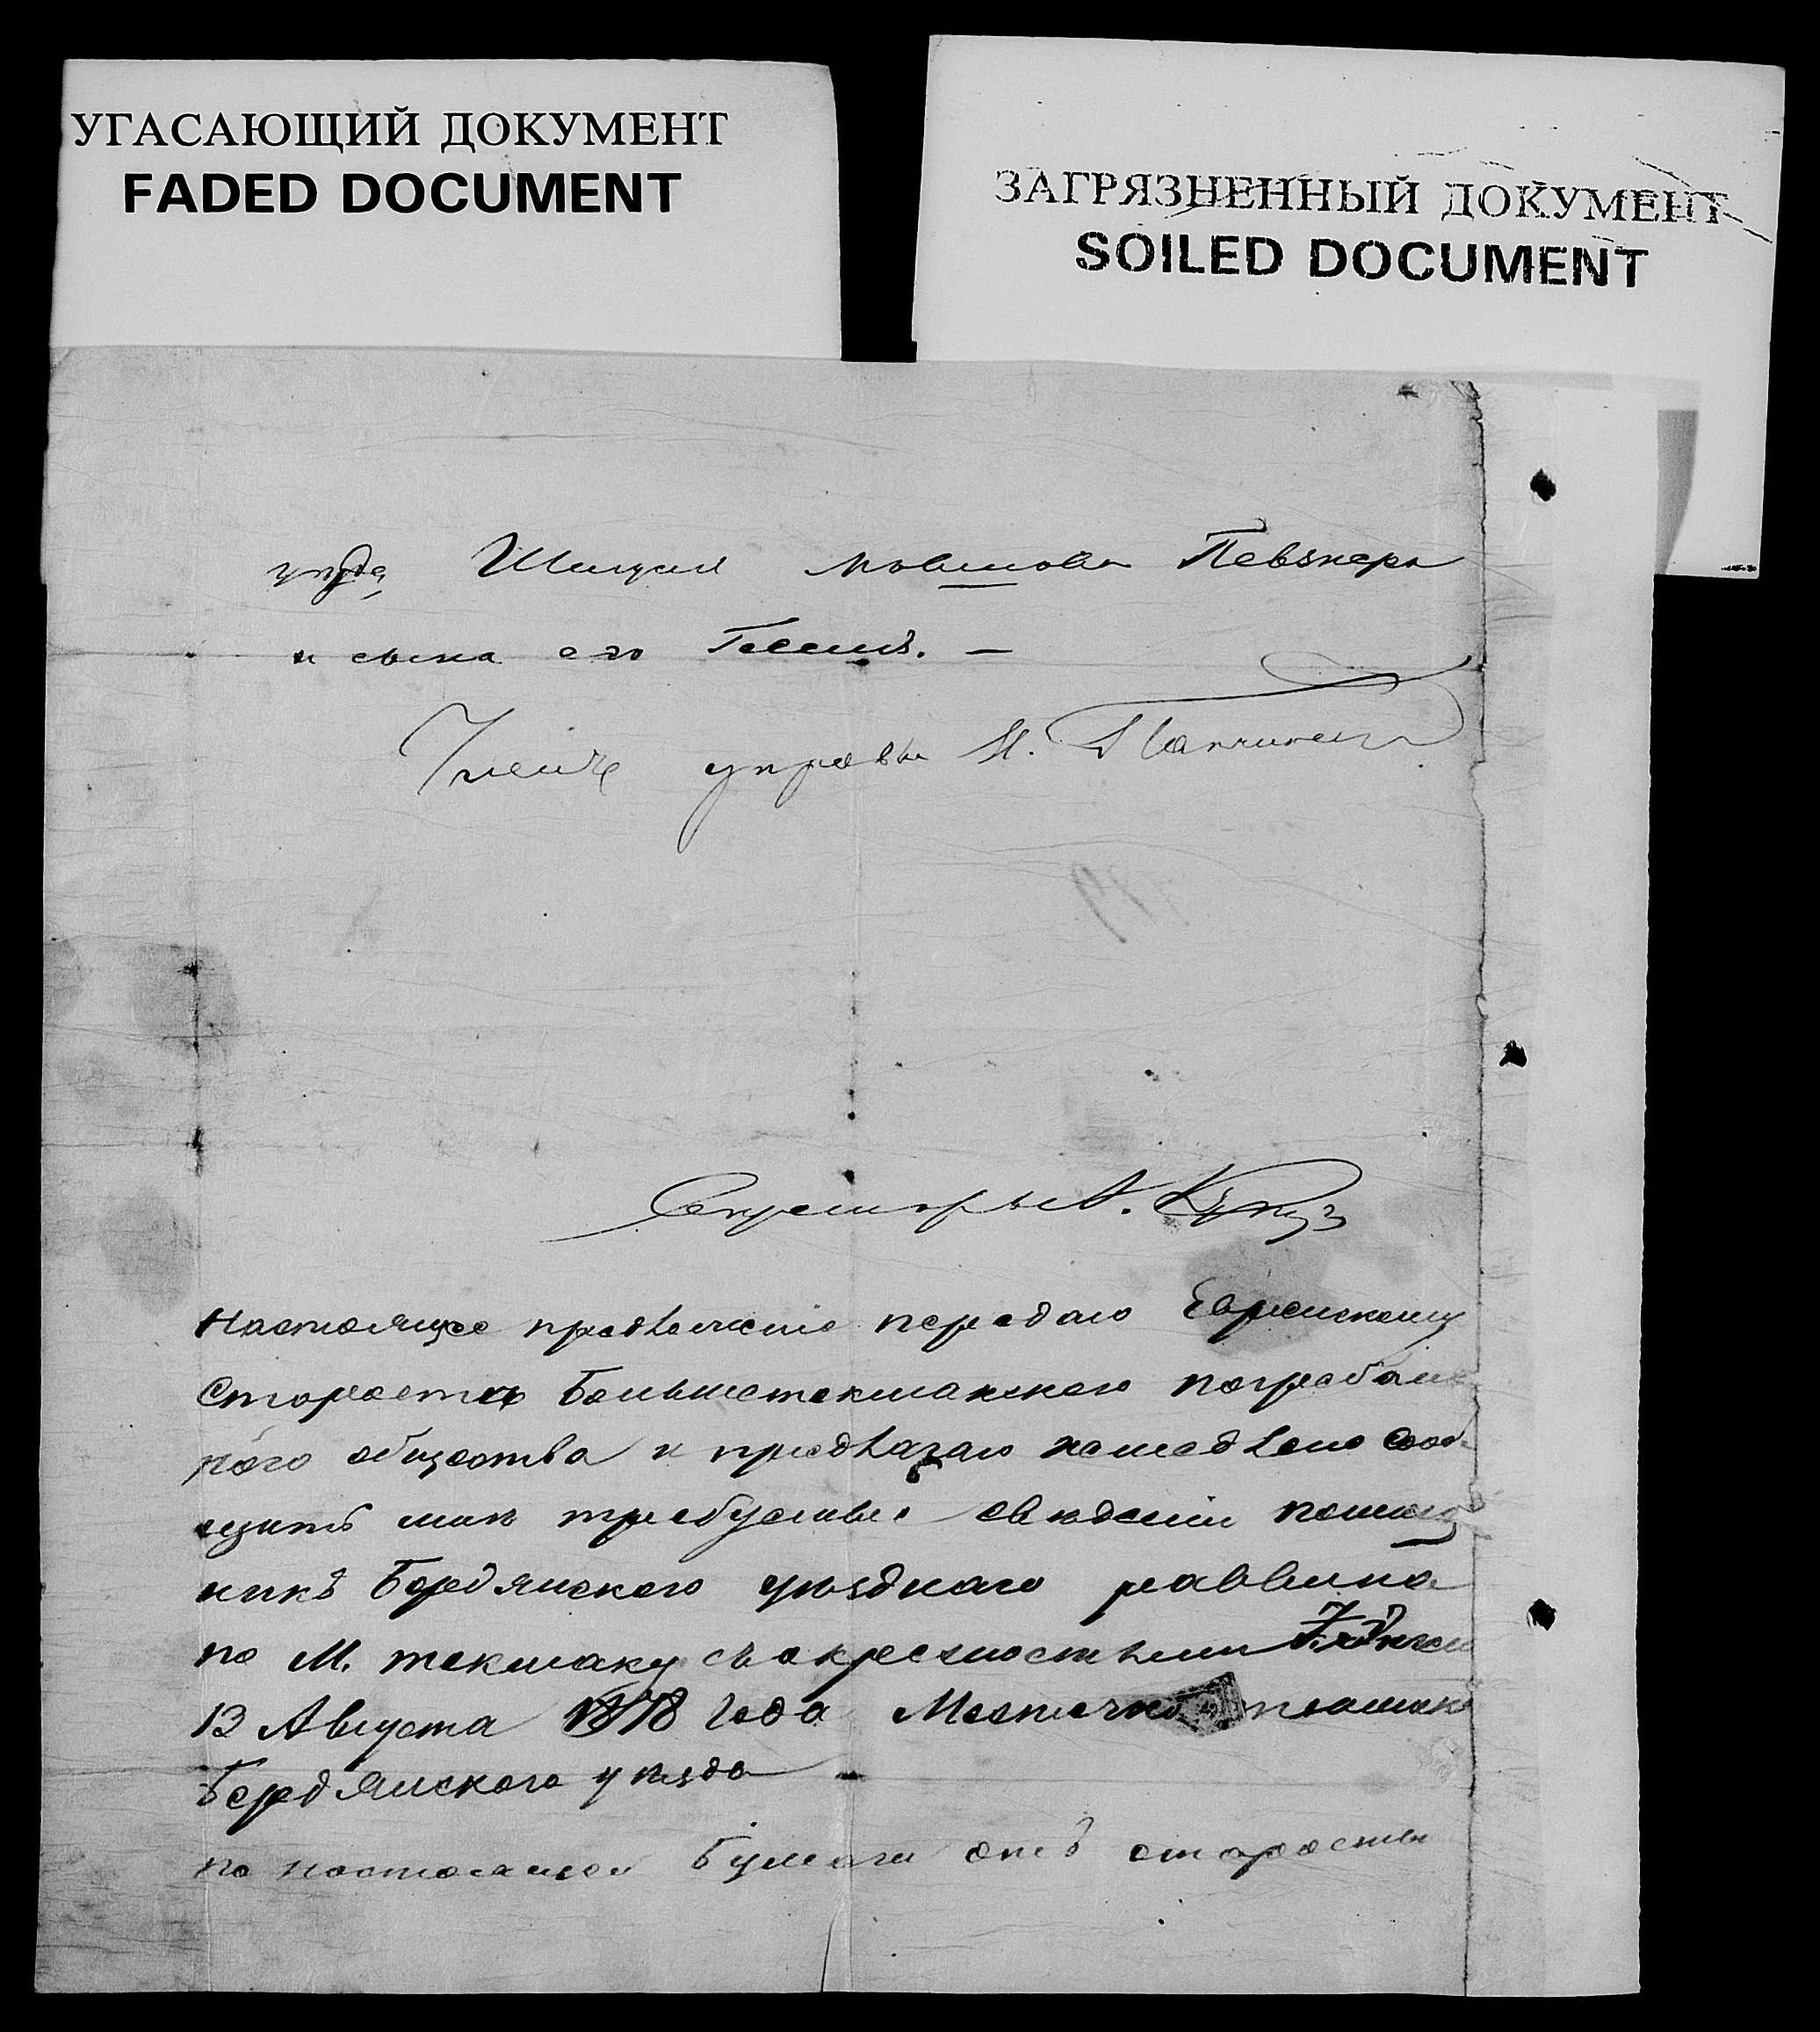 УГАСАЮЩИЙ ДОКУМЕНТ
FADED DOCUMENT
ЗАГРЯЗНЕННЫЙ ДОКУМЕНТ
SOILED DOCUMENT
Мовшова Певзнера
и сына его
Членъ управы
Секретарь А.
Настоящее предложеніе передаю Еврейскому
Старосте Большетокмакского погребаль
ного общества и предлагаю немедлено сооб-
щить мнѣ требуемые сведении помощ
никъ Бердянского уѣзднаго раввина
по М. токмаку съ окрестностьями
13 Августа 1878 года Местечко токмакъ
Бердянского уѣзда
по настоящей бумаги отъ старосты